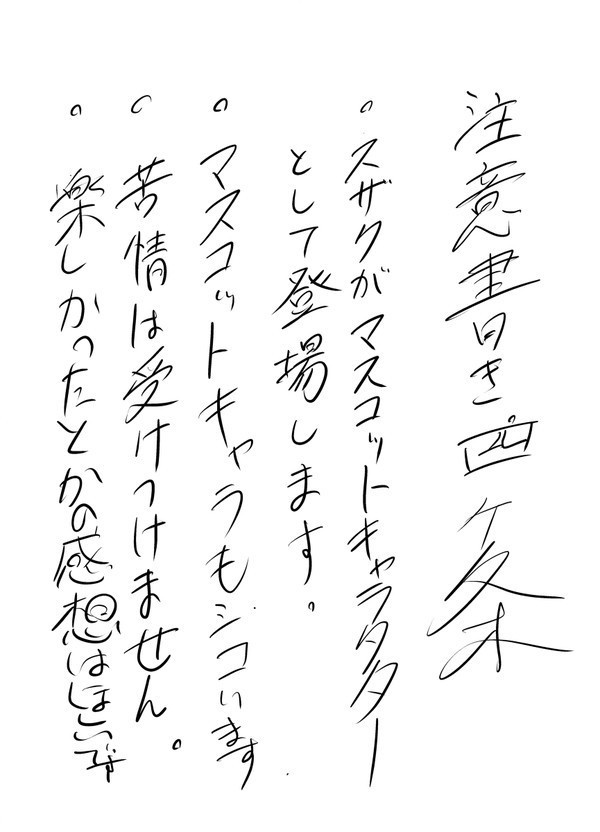 注意書き 西ヶ久木
。スザクがマスコットキャラクター
として登場します。
。マスコットキャラもシコいます
。苦情は受けつけません。
。楽しかったとかの感想はほしいです